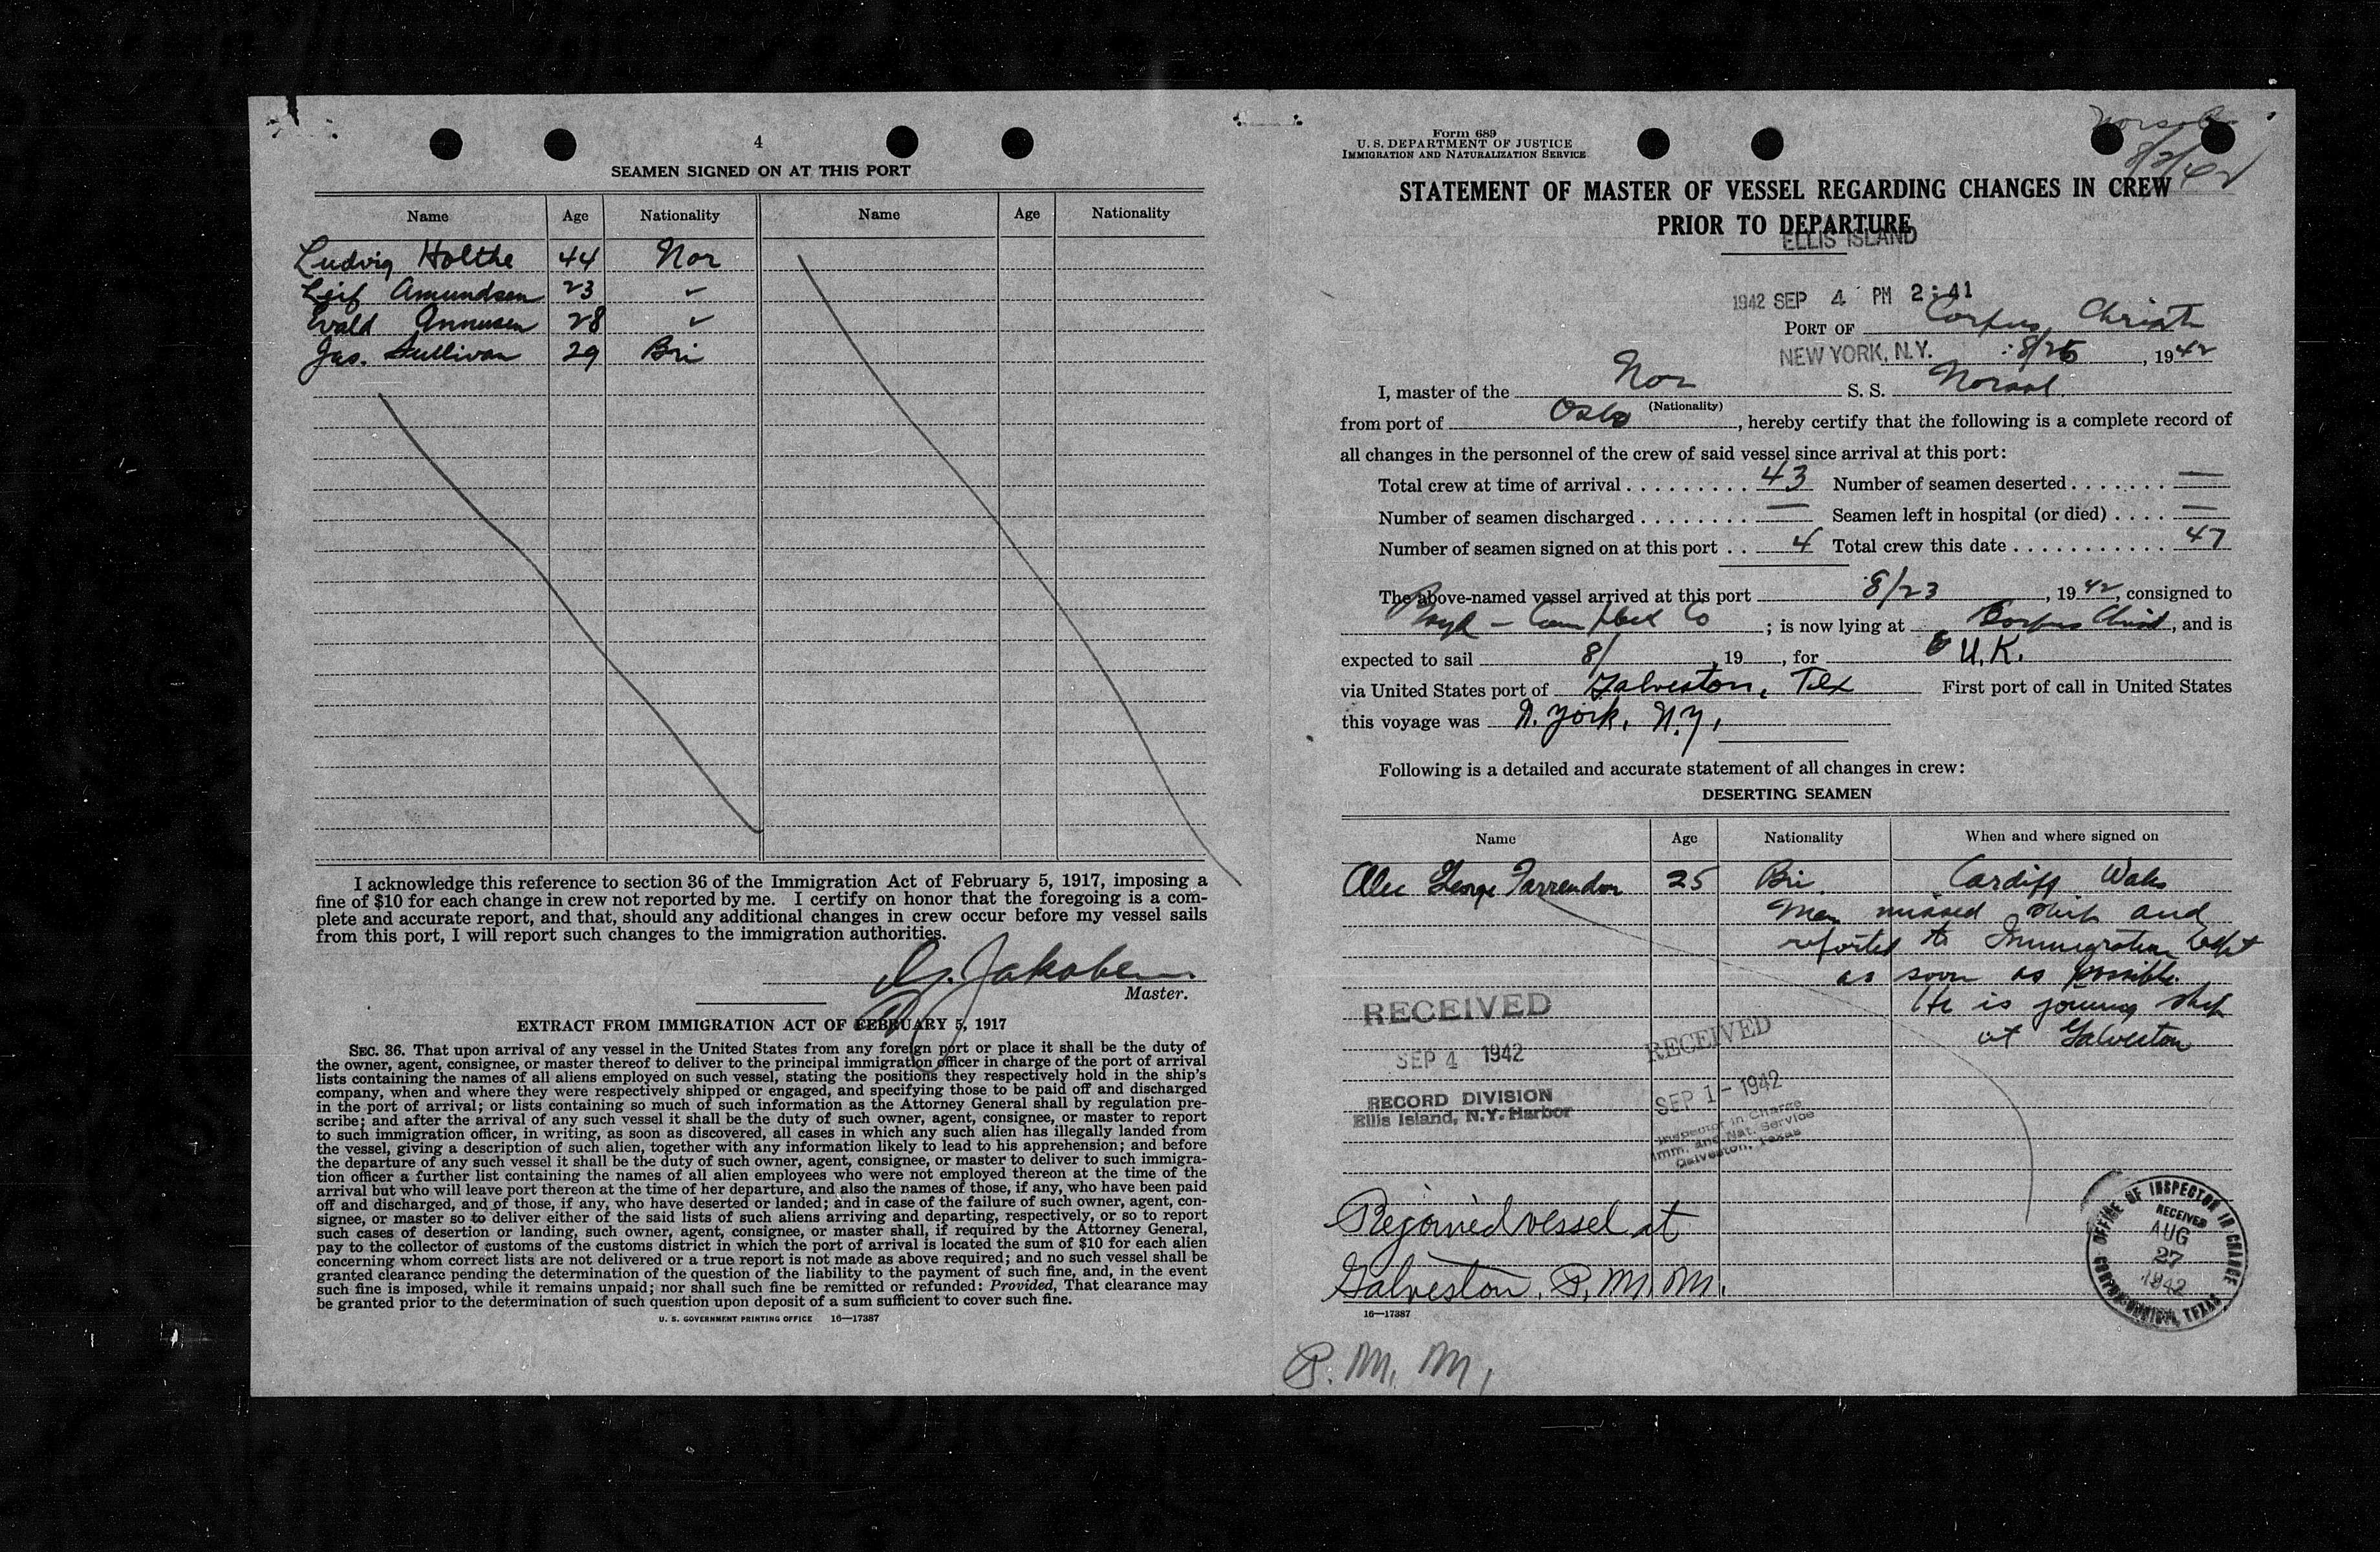 4
SEAMEN SIGNED ON AT THIS PORT
Name Age Nationality Name Age Nationality
Ludvig Holthe 44 Nor
Leif Amundsen 23 ✓
28 ✓
Jas. Sullivan 29 Bri
I acknowledge this reference to section 36 of the Immigration Act of February 5, 1917, imposing a
fine of $10 for each change in crew not reported by me. I certify on honor that the foregoing is a com-
plete and accurate report, and that, should any additional changes in crew occur before my vessel sails
from this port, I will report such changes to the immigration authorities.
Jakobsen
Master.
EXTRACT FROM IMMIGRATION ACT OF FEBRUARY 5, 1917
SEC. 36. That upon arrival of any vessel in the United States from any foreign port or place it shall be the duty of
the owner, agent, consignee, or master thereof to deliver to the principal immigration officer in charge of the port of arrival
lists containing the names of all aliens employed on such vessel, stating the positions they respectively hold in the ship's
company, when and where they were respectively shipped or engaged, and specifying those to be paid off and discharged
in the port of arrival; or lists containing so much of such information as the Attorney General shall by regulation pre-
scribe; and after the arrival of any such vessel it shall be the duty of such owner, agent, consignee, or master to report
to such immigration officer, in writing, as soon as discovered, all cases in which any such alien has illegally landed from
the vessel, giving a description of such alien, together with any information likely to lead to his apprehension; and before
the departure of any such vessel it shall be the duty of such owner, agent, consignee, or master to deliver to such immigra-
tion officer a further list containing the names of all alien employees who were not employed thereon at the time of the
arrival but who will leave port thereon at the time of her departure, and also the names of those, if any, who have been paid
off and discharged, and of those, if any, who have deserted or landed; and in case of the failure of such owner, agent, con-
signee, or master so to deliver either of the said lists of such aliens arriving and departing, respectively, or so to report
such cases of desertion or landing, such owner, agent, consignee, or master shall, if required by the Attorney General,
pay to the collector of customs of the customs district in which the port of arrival is located the sum of $10 for each alien
concerning whom correct lists are not delivered or a true report is not made as above required; and no such vessel shall be
granted clearance pending the determination of the question of the liability to the payment of such fine, and, in the event
such fine is imposed, while it remains unpaid; nor shall such fine be remitted or refunded: Provided, That clearance may
be granted prior to the determination of such question upon deposit of a sum sufficient to cover such fine.
U. S. GOVERNMENT PRINTING OFFICE 16—17387
Form 689
U. S. DEPARTMENT OF JUSTICE
IMMIGRATION AND NATURALIZATION SERVICE
Norsol
STATEMENT OF MASTER OF VESSEL REGARDING CHANGES IN CREW
PRIOR TO DEPARTURE
ELLIS ISLAND
1942 SEP 4 PM 2:41
PORT OF Corpus Christi
NEW YORK, N.Y. 8/26, 1942
I, master of the Nor S. S. Norsol
(Nationality)
from port of Oslo, hereby certify that the following is a complete record of
all changes in the personnel of the crew of said vessel since arrival at this port:
Total crew at time of arrival 43 Number of seamen deserted —
Number of seamen discharged — Seamen left in hospital (or died) —
Number of seamen signed on at this port 4 Total crew this date 47
The above-named vessel arrived at this port 8/23, 1942, consigned to
Boyd - Campbell Co; is now lying at Corpus Christi, and is
expected to sail 8/, 19, for U.K.
via United States port of Galveston, Tex First port of call in United States
this voyage was N. York, N.Y.
Following is a detailed and accurate statement of all changes in crew:
DESERTING SEAMEN
Name Age Nationality When and where signed on
Alec George 25 Bri. Cardiff Wales
Man missed ship and
reported to Immigration Dept
as soon as possible.
He is joining ship
at Galveston
RECEIVED
SEP 4 1942
RECORD DIVISION
Ellis Island, N.Y. Harbor
RECEIVED
SEP 1 - 1942
Inspector in Charge
Imm. and Nat. Service
Galveston, Texas
Rejoined vessel at
Galveston. P. M. M.
16—17387
OFFICE OF INSPECTOR IN CHARGE
RECEIVED
AUG
27
1942
CORPUS CHRISTI, TEXAS
P. M. M.